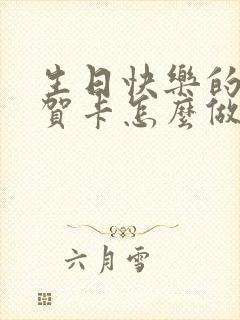 生日快樂的
賀卡怎麼做
六月雪